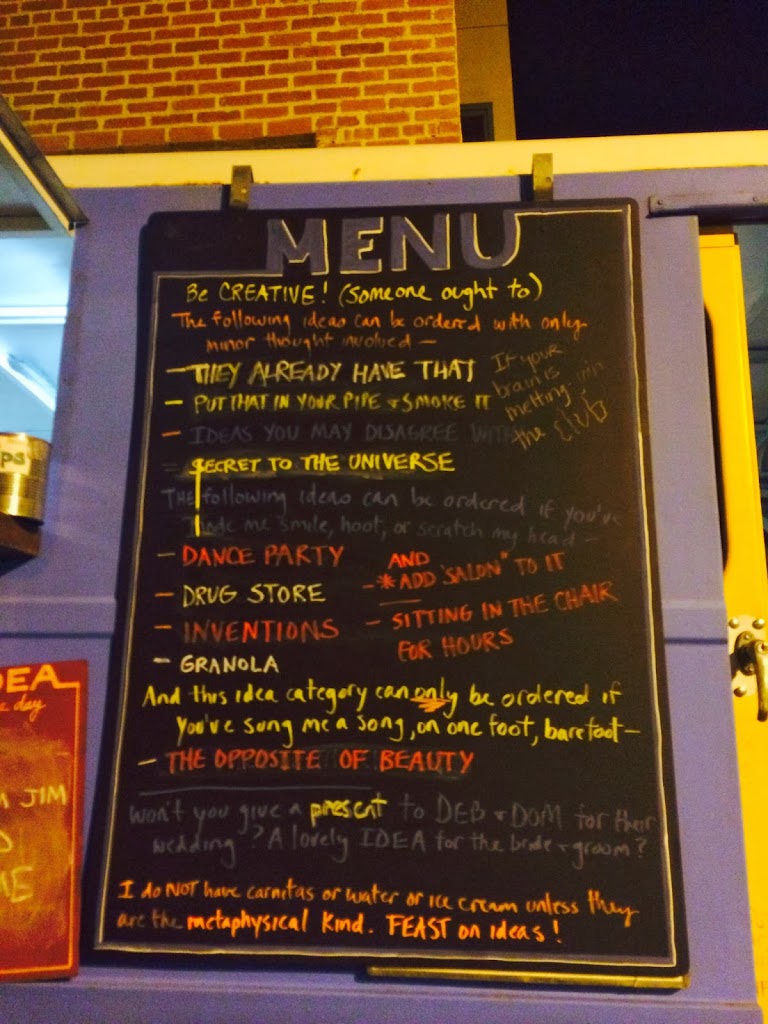 MENU
Be CREATIVE! (someone ought to)
The following ideas can be ordered with only
minor thought involved —
— THEY ALREADY HAVE THAT
— PUT THAT IN YOUR PIPE & SMOKE IT
— IDEAS YOU MAY DISAGREE WITH
— SECRET TO THE UNIVERSE
If your
brain is
melting
the
The following ideas can be ordered if you've
made me smile, hoot, or scratch my head —
— DANCE PARTY
— DRUG STORE
— INVENTIONS
— GRANOLA
AND
— * ADD "SALON" TO IT
— SITTING IN THE CHAIR
FOR HOURS
And this idea category can only be ordered if
you've sung me a song, on one foot, barefoot —
— THE OPPOSITE OF BEAUTY
Won't you give a present to DEB & DOM for their
wedding? A lovely IDEA for the bride & groom?
I do NOT have carnitas or water or ice cream unless they
are the metaphysical kind. FEAST on ideas!
PS
DEA
day
JIM